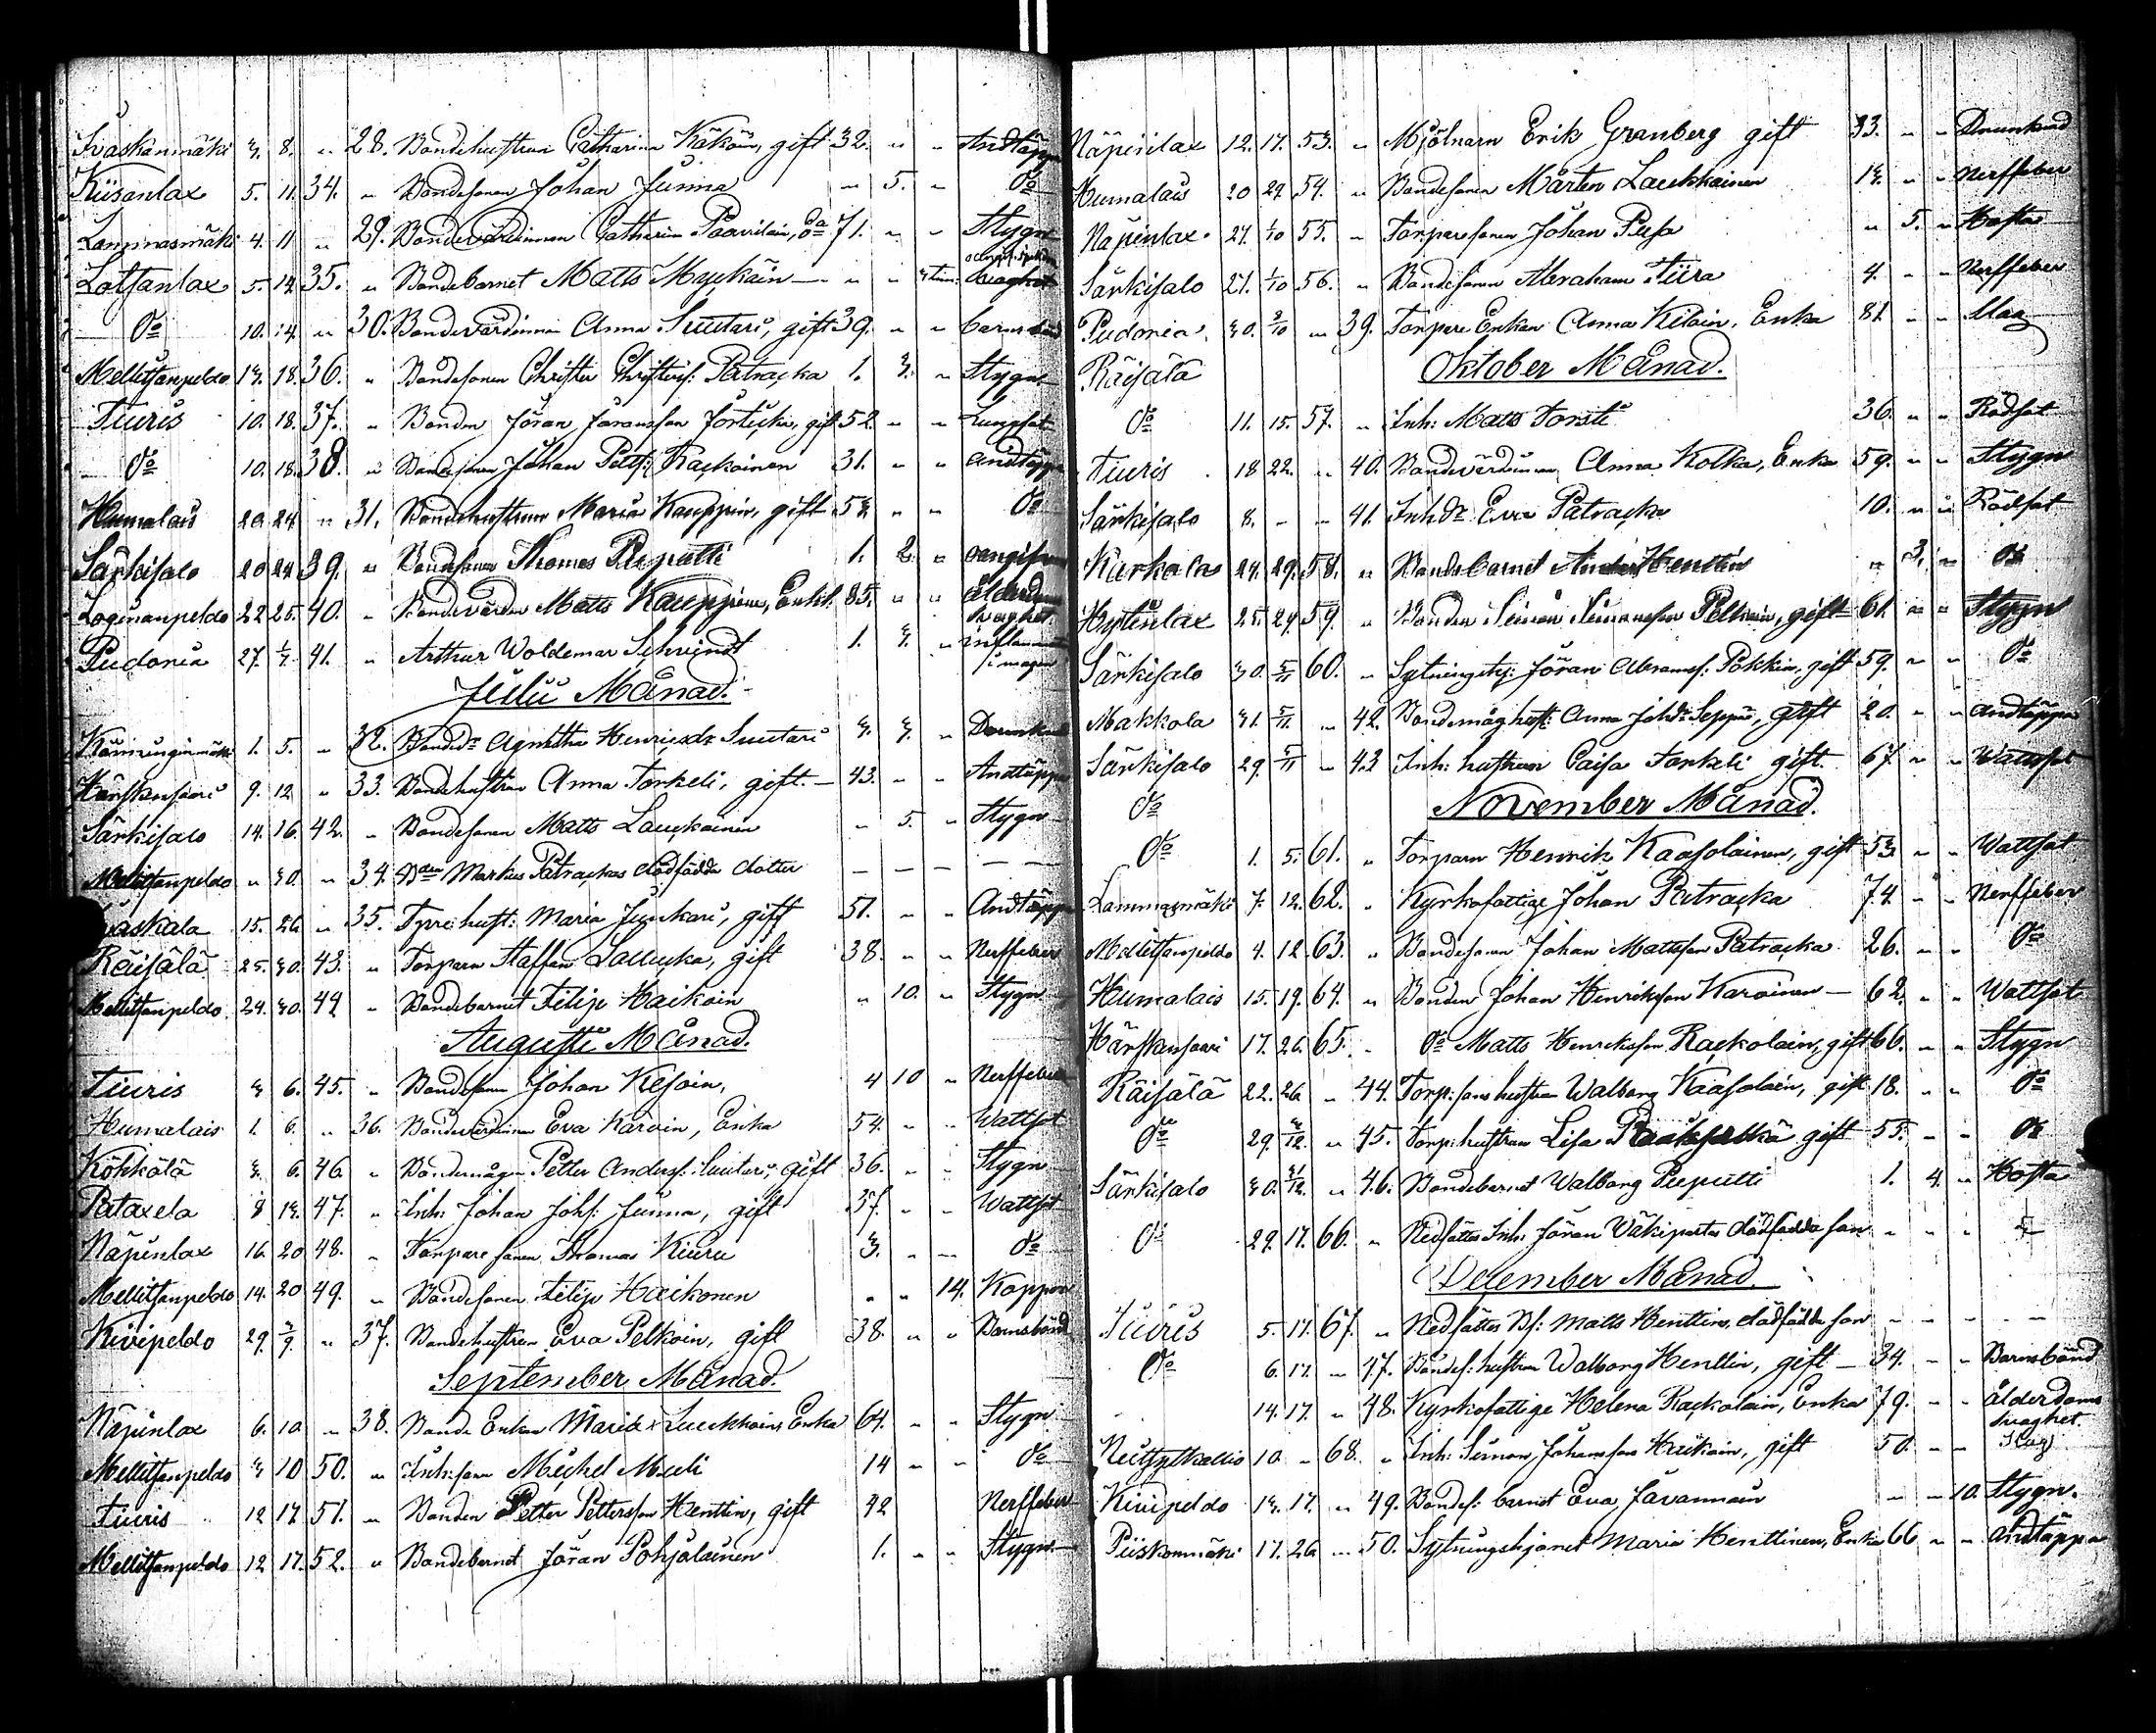 Ivaskanmäki 3. 8. " 28. Bondehustrun Catharina Käköin, gift 32. " " Andtäppa
Kiisanlax 5. 11. 34. " Bondesonen Johan Junna " 5. " Do
Lammasmäki 4. 11 " 29. Bondevärdinnan Catharina Paavilain, Do 71. " " Stygn
Lotsanlax 5. 14 35. " Bondebarnet Matts Myckäin " " tim: swaghet
Do 10. 14. " 30. Bondevärdinnan Anna Suutari, gift 39. " " barnsbörd
Mellitsanpeldo 13. 18. 36. " Bondesonen Christer Christers: Patracka 1. 3. " Stygn
Tiuris 10. 18. 37. " Bonden Jöran Jöransson Jörticka, gift 52. " " Lungsot
Do 10. 18. 38. " Bondesonen Johan Petts: Rackoinen 31. " " andtäppa
Humalais 20. 24 " 31. Bondehustrun Maria Kauppin, gift 53. " " Do
Särkisalo 20 24 39. " Bondesonen Thomas Pieputti 1. 2. " oangifven
Loginanpeldo 22 25. 40. " Bondevärden Matts Kauppinen, Enkl. 85. " " ålderdoms
swaghet.
Pudoria 27. 1/7. 41. " Arthur Woldemar Schvindt 1. 3. " inflammation
i magen
Julii Månad.
1. 5. " 32. Bonded:r Agnetha Henricsd:r Suutari 3. 3. " Drunknad
Härskensaari 9. 12 " 33. Bondehustrun Anna Torkeli, gift. 43. " " Andtäppa
Särkisalo 14. 16. 42. " Bondesonen Matts Lauckainen " 5. " Stygn
Mellitsanpeldo " 30. " 34. Markus Patrackas dödfödda dotter
Ivaskala 15. 26 " 35. Maria Junkari, gift 51. " " Andtäppa
Räisälä 25. 30. 43. " Torparn Staffan Laulucka, gift 38. " " Nerffeber
Mellitsanpeldo 24. 30. 44 " Bondebarnet Filip Haikoin " 10. " Stygn
Augusti Månad.
Tiuris 3 6. 45. " Bondesonen Johan Kesoin, 4 10 " Nerffeber
Humalais 1. 6. " 36. Bondevärdinnan Eva Karoin, Enka 54. " " Wattsot
Kökkölä 3. 6. 46 " Bondemågen Petter Anders: Suutari, gift 36. " " Stygn
Pataxela 8 13. 47. " Inh: Johan Johs: Junna, gift 37. " " Wattsot
Näpinlax 16. 20 48. " Torparesonen Thomas Kiuru 3. " " Do
Mellitsanpeldo 14. 20 49. " Bondesonen Filip Haikonen " " 14. Koppor
Kivipeldo 29. 3/9. " 37. Bondehustrun Eva Pelkoin, gift 38. " " Barnsbörd
September Månad.
Näpinlax 6. 10 " 38. Bonde Enkan Maria Luukkoin, Enka 64. " " Stygn
Mellitsanpeldo 3 10 50. " Inh: sonen Michel Musli 14 " " Do
Tiuris 12 17 51. " Bonden Petter Pettersson Henttin, gift 42 Nerffeber
Mellitsanpeldo 12 17. 52. " Bondebarnet Jöran Pohjolainen 1. " " Stygn
Näpinlax 12. 17. 53. " Mjölnarn Erik Granberg gift 33. " " Drunknad
Humalais 20 24 54. " Bondesonen Mårten Laukkainen 13. " " Nerffeber
Näpinlax 27. 1/10 55. " Torparesonen Johan Pusa " 5. " Hosta
Särkisalo 27. 1/10 56. " Bondesonen Abraham Tiira 4. " " Nerffeber
Pudoria 30. 2/10 " 39. Torpare Enkan Anna Kiloin, Enka 81 " " Slag
Räisälä
Oktober Månad.
Do 11. 15. 57. " Inh: Matts Torsti 36. " " Rödsot
Tiuris 18 22. " 40. Bondevärdinnan Anna Kolka, Enka 59. " " Stygn
Särkisalo 8. " " 41. Inh d:r Eva Patracka 10. " " Rödsot
Kurkola 24. 29. 58. " Bondebarnet Anders Henttin " 3. " Do
Hytinlax 25. 29. 59. " Bonden Simon Simonsson Peltoin, gift 61. " " Stygn
Särkisalo 30. 5/11 60. " Sytningshj: Jöran Abramss: Pökkin, gift 59. " " Do
Makkola 31. 5/11. " 42. Bondemåghust: Anna Johd:r Seppä, gift 20. " " andtäppa
Särkisalo 29. 5/11 " 43 Inh: hustrun Caisa Torkeli gift. 67. " " Wattsot
Do
November Månad.
Do 1. 5. 61. " Torparn Henrik Kaasolainen, gift 53 " " Wattsot
Lammasmäki 7. 12. 62. " Kyrkofattige Johan Patracka 74. " " Nerffeber
Mellitsanpeldo 4. 12. 63. " Bondesonen Johan Mattsson Patracka 26. " " Do
Humalais 15. 19. 64. " Bonden Johan Henriksson Karoinen 62. " " Wattsot
Härskensaari 17. 26. 65. " Do Matts Henricksson Rackolain, gift 66. " " Stygn
Räisälä 22. 26 " 44. Torp: sons hustrun Walborg Kaasolain, gift 18. " " Do
Do 29. 3/12. " 45. Torp: hustrun Lisa gift 55. " " Do
Särkisalo 30. " 46. Bondebarnet Walborg Pieputti 1. 4. " Hosta
Do 29. 17. 66. " Nedsattes Inh: Jöran Väkipartas dödfödda son " " "
December Månad.
Tiuris 5. 17. 67. " Nedsattes Bs: Matts Henttins dödfödda son
Do 6. 17. " 47. Bondes: hustrun Walborg Henttin, gift 34. " " Barnsbörd
" 14. 17. " 48. Kyrkofattige Helena Rackolain, Enka 79. " " ålderdoms
swaghet.
10 " 68. " Inh: Simon Johansson Haikoin, gift 50. " " Slag
Kivipeldo 13. 17. " 49. Bondes: barnet Eva Javannain " " 10. Stygn.
Piiskonmäki 17. 26 " 50. Sytningshjonet Maria Henttinen, Enka 66 " " andtäppa